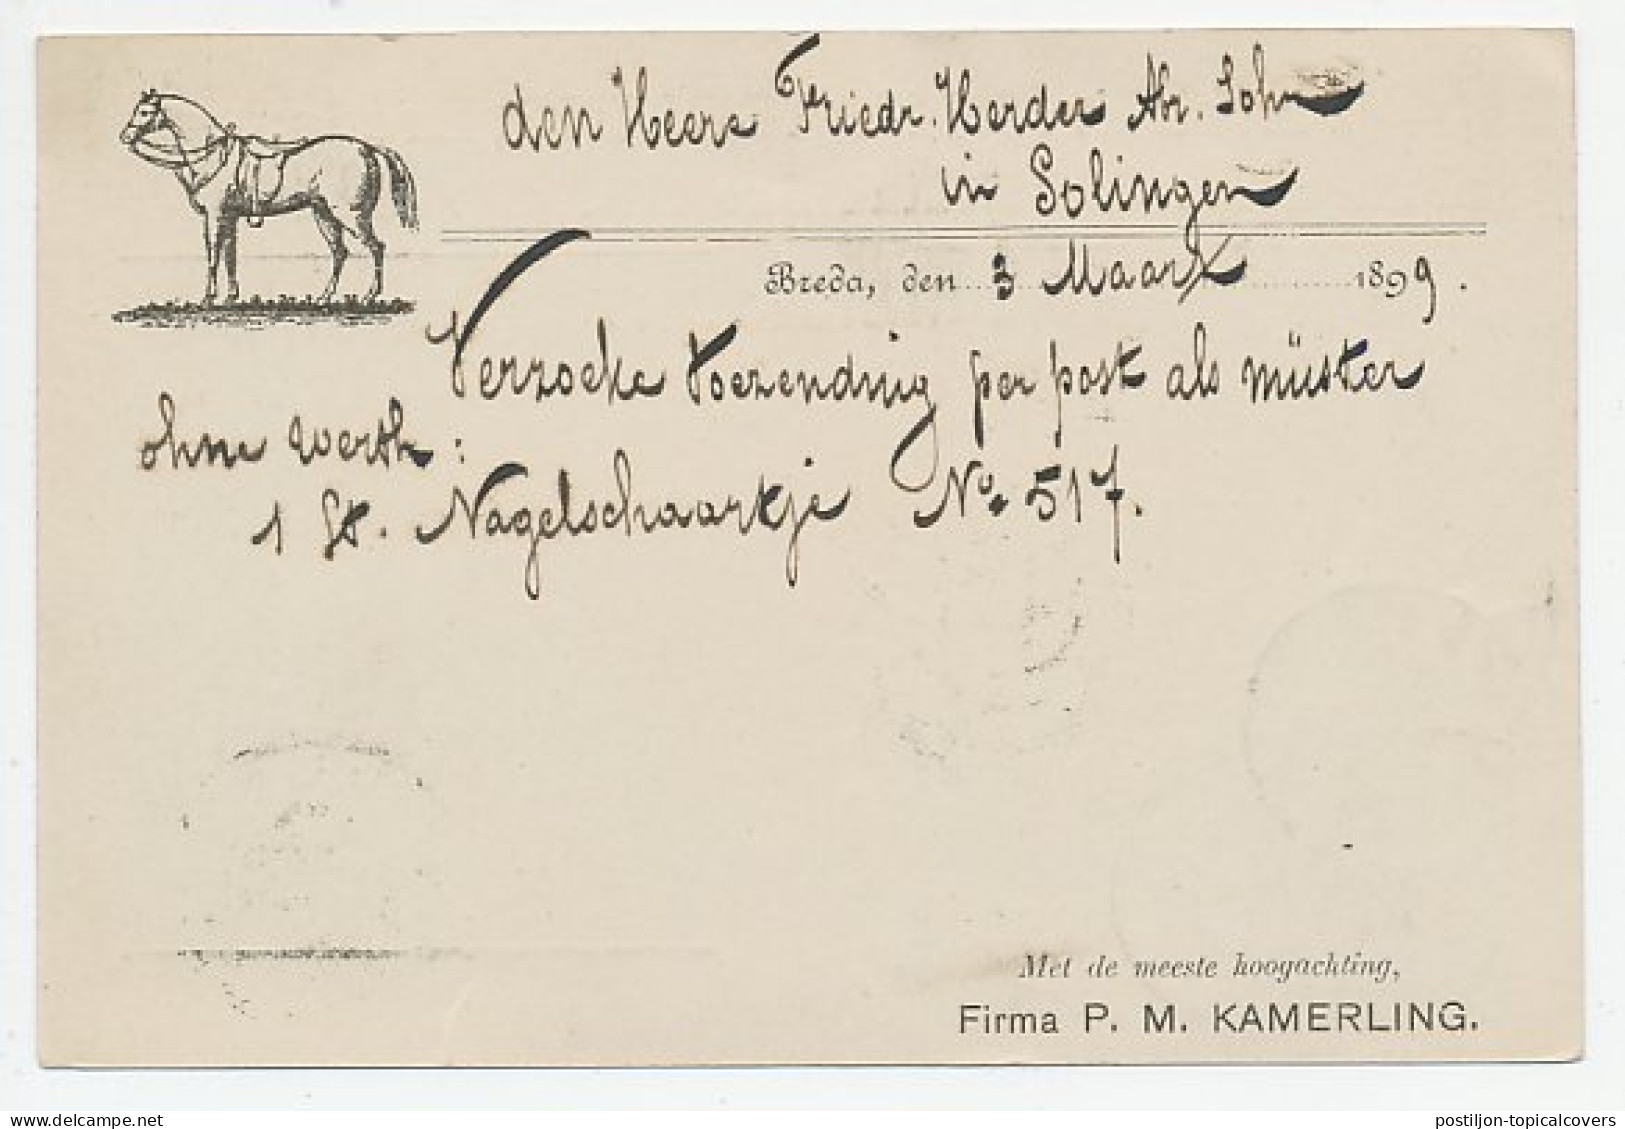 den Heere Friedr. Herder Abr. Sohn
in Solingen
Breda, den 3 Maart 1899.
Verzoeke toezending per post als müster
ohne werth:
1 St. Nagelschaartje No. 517.
Met de meeste hoogachting,
Firma P. M. KAMERLING.
postiljon-topicalcovers